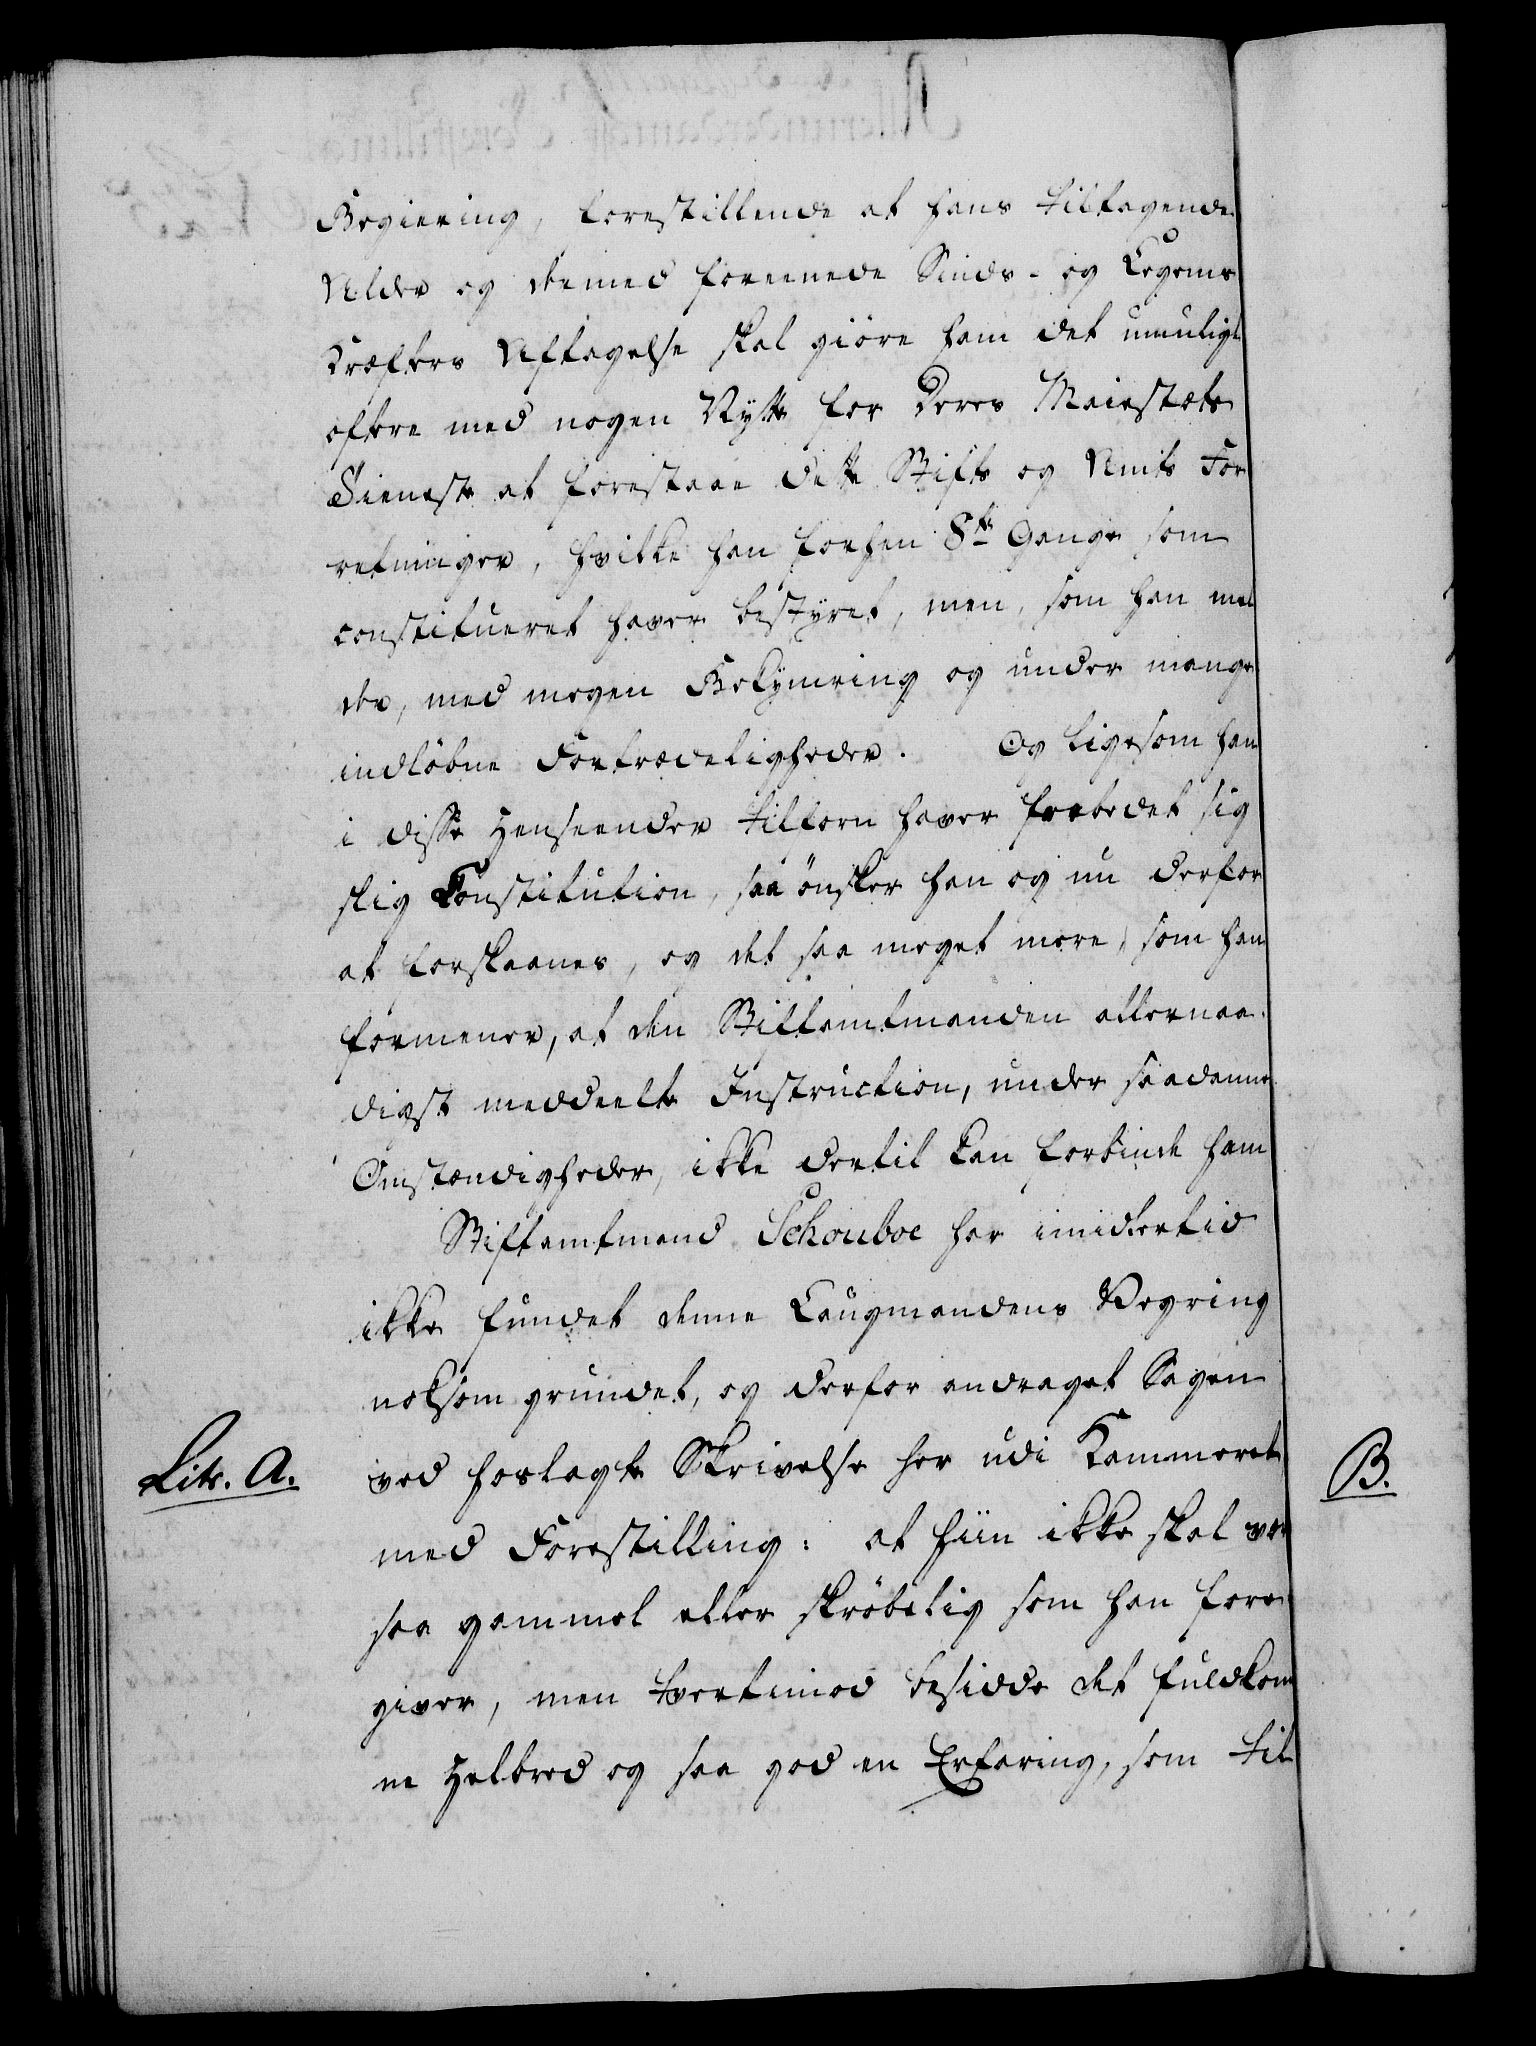 Begiering, forestillende at hans tiltagende
Alder og dermed foreenede Sinds- og Legems
Kræfters Aftagelse skal giöre ham det umuligt
oftere med nogen Nytte for Deres Maiestæts
Tieneste at forestaae dette Stifts og Amts For
retninger, hvilke han forhen 8te Gange som
constitueret haver bestyret, men, som han mel
der, med megen Bekymring og under mange
indløbne Fortrædeligheder. Og ligesom han
i disse Henseender tilforn haver frabedet sig
slig Constitution, saa ønsker han og nu derfor
at forskaanes, og det saa meget mere, som han
formener, at den Stiftamtmanden allernaa-
digst meddeelte Instruction, under saadanne
Omstændigheder, ikke dertil kan forbinde ham
Stiftamtmand Schouboe har imidlertid
ikke fundet denne Laugmandens Vegring
noksom grundet, og derfor andraget Sagen
Litr. A.
ved forlagte Skrivelse her udi Kammeret
B.
med Forestilling: at hiin ikke skal være
saa gammel eller skrøbelig som han fore-
giver, men tvertimod besidde det fuldkom
ne Helbred og saa god en Erfaring, som til